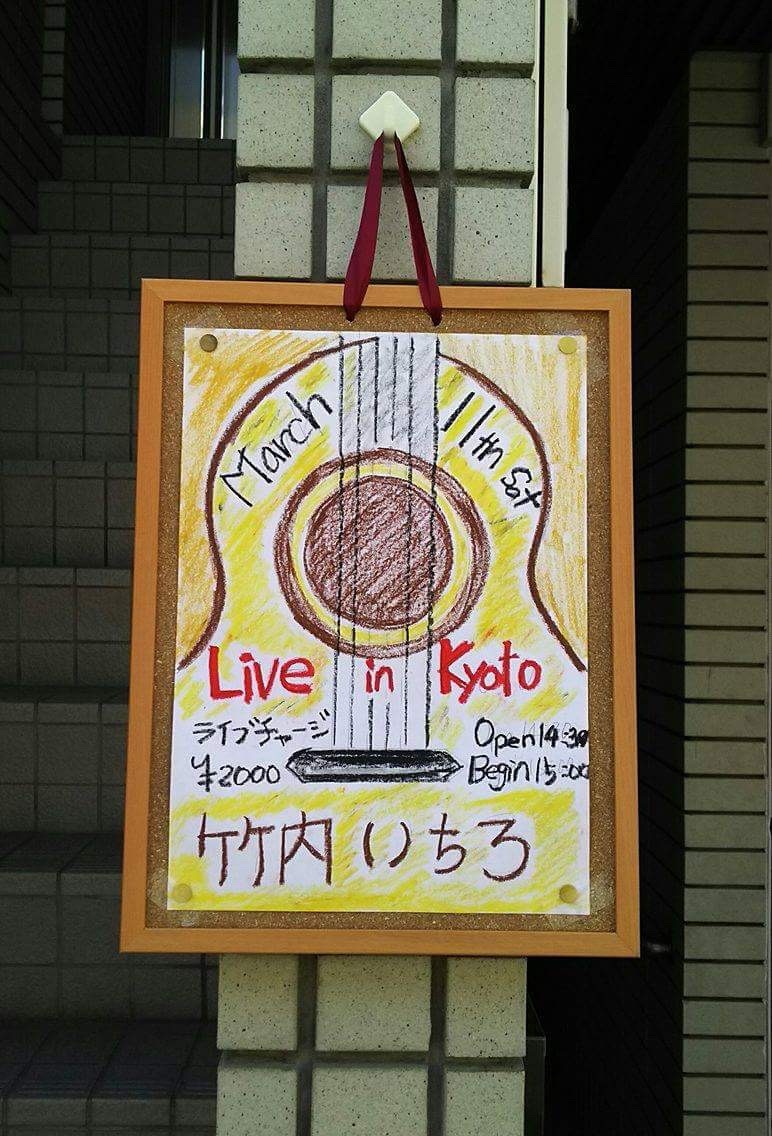 March 11th Sat
Live in Kyoto
ライブチャージ
¥2000
Open 14:30
Begin 15:00
竹内いちろ